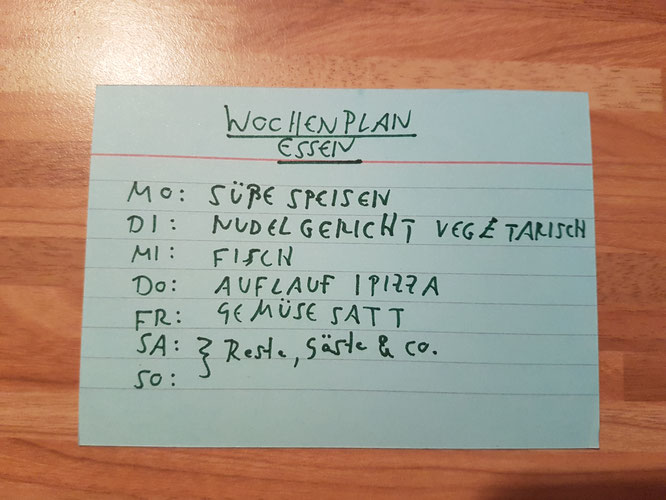 WOCHENPLAN
ESSEN
MO: SÜßE SPEISEN
DI: NUDELGERICHT VEGETARISCH
MI: FISCH
DO: AUFLAUF / PIZZA
FR: GEMÜSE SATT
SA: } Reste, Gäste & co.
SO: